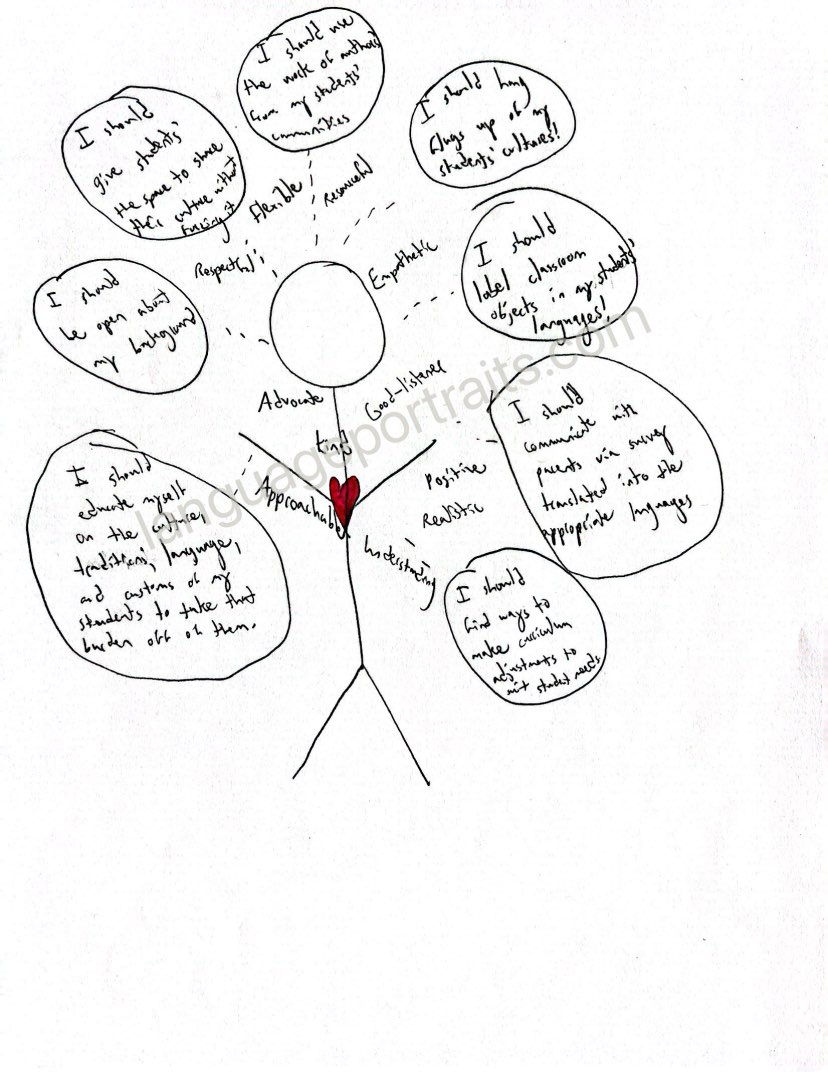 I should use
the work of authors
from my students'
communities
I should hang
flags up of my
students' cultures!
I should
give students'
the space to share
their culture without
forcing it
Flexible
Resourceful
Respectful
Empathetic
I should
label classroom
objects in my students'
languages!
I should
be open about
my background
Advocate
Good-listener
Kind
Approachable
Positive
Realistic
Understanding
I should
communicate with
parents via survey
translated into the
appropriate languages
I should
educate myself
on the culture,
traditions, language,
and customs of my
students to take that
burden off of them.
I should
find ways to
make curriculum
adjustments to
suit student needs
languageportraits.com